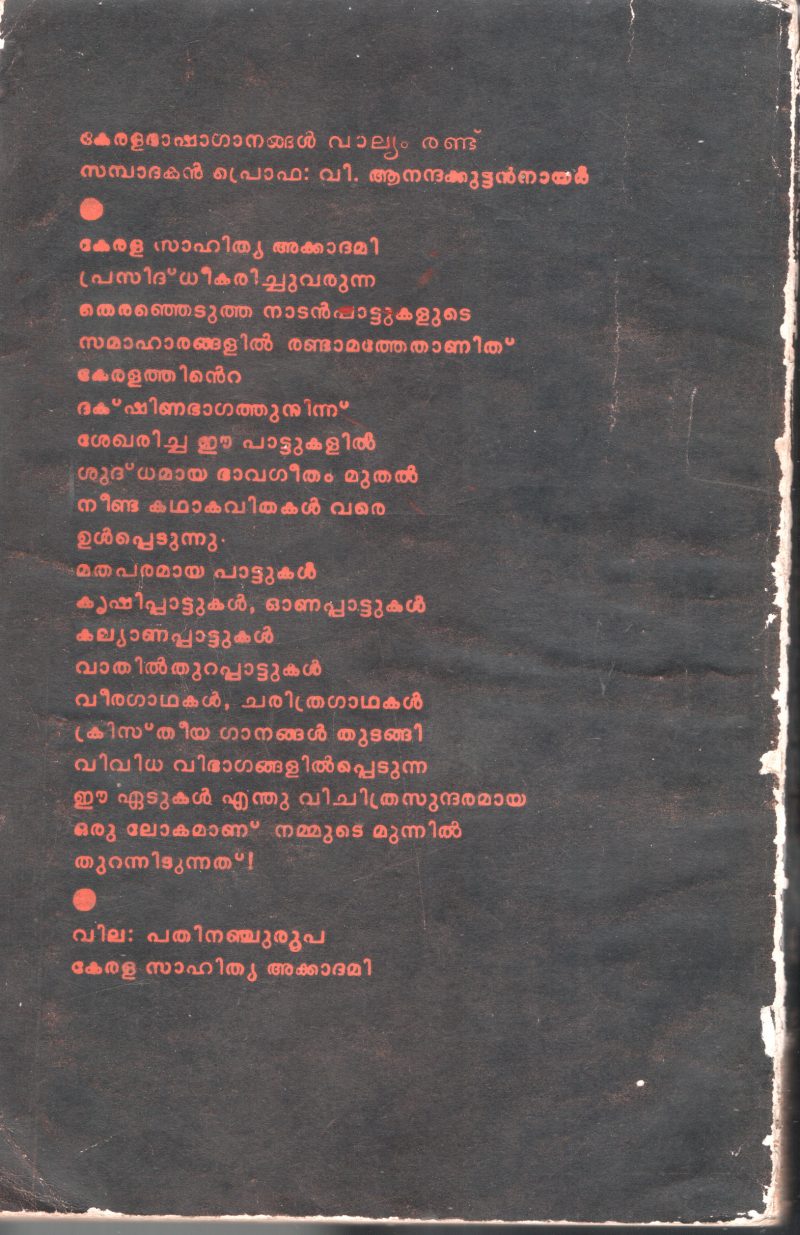 കേരളഭാഷാഗാനങ്ങൾ വാല്യം രണ്ട്
സമ്പാദകൻ പ്രൊഫ: വി. ആനന്ദക്കുട്ടൻനായർ
കേരള സാഹിത്യ അക്കാദമി
പ്രസിദ്ധീകരിച്ചുവരുന്ന
തെരഞ്ഞെടുത്ത നാടൻപാട്ടുകളുടെ
സമാഹാരങ്ങളിൽ രണ്ടാമത്തേതാണിത്
കേരളത്തിൻെറ
ദക്ഷിണഭാഗത്തുനിന്ന്
ശേഖരിച്ച ഈ പാട്ടുകളിൽ
ശുദ്ധമായ ഭാവഗീതം മുതൽ
നീണ്ട കഥാകവിതകൾ വരെ
ഉൾപ്പെടുന്നു.
മതപരമായ പാട്ടുകൾ
കൃഷിപ്പാട്ടുകൾ, ഓണപ്പാട്ടുകൾ
കല്യാണപ്പാട്ടുകൾ
വാതിൽതുറപ്പാട്ടുകൾ
വീരഗാഥകൾ, ചരിത്രഗാഥകൾ
ക്രിസ്തീയ ഗാനങ്ങൾ തുടങ്ങി
വിവിധ വിഭാഗങ്ങളിൽപ്പെടുന്ന
ഈ ഏടുകൾ എന്തു വിചിത്രസുന്ദരമായ
ഒരു ലോകമാണ് നമ്മുടെ മുന്നിൽ
തുറന്നിടുന്നത്!
വില: പതിനഞ്ചുരൂപ
കേരള സാഹിത്യ അക്കാദമി